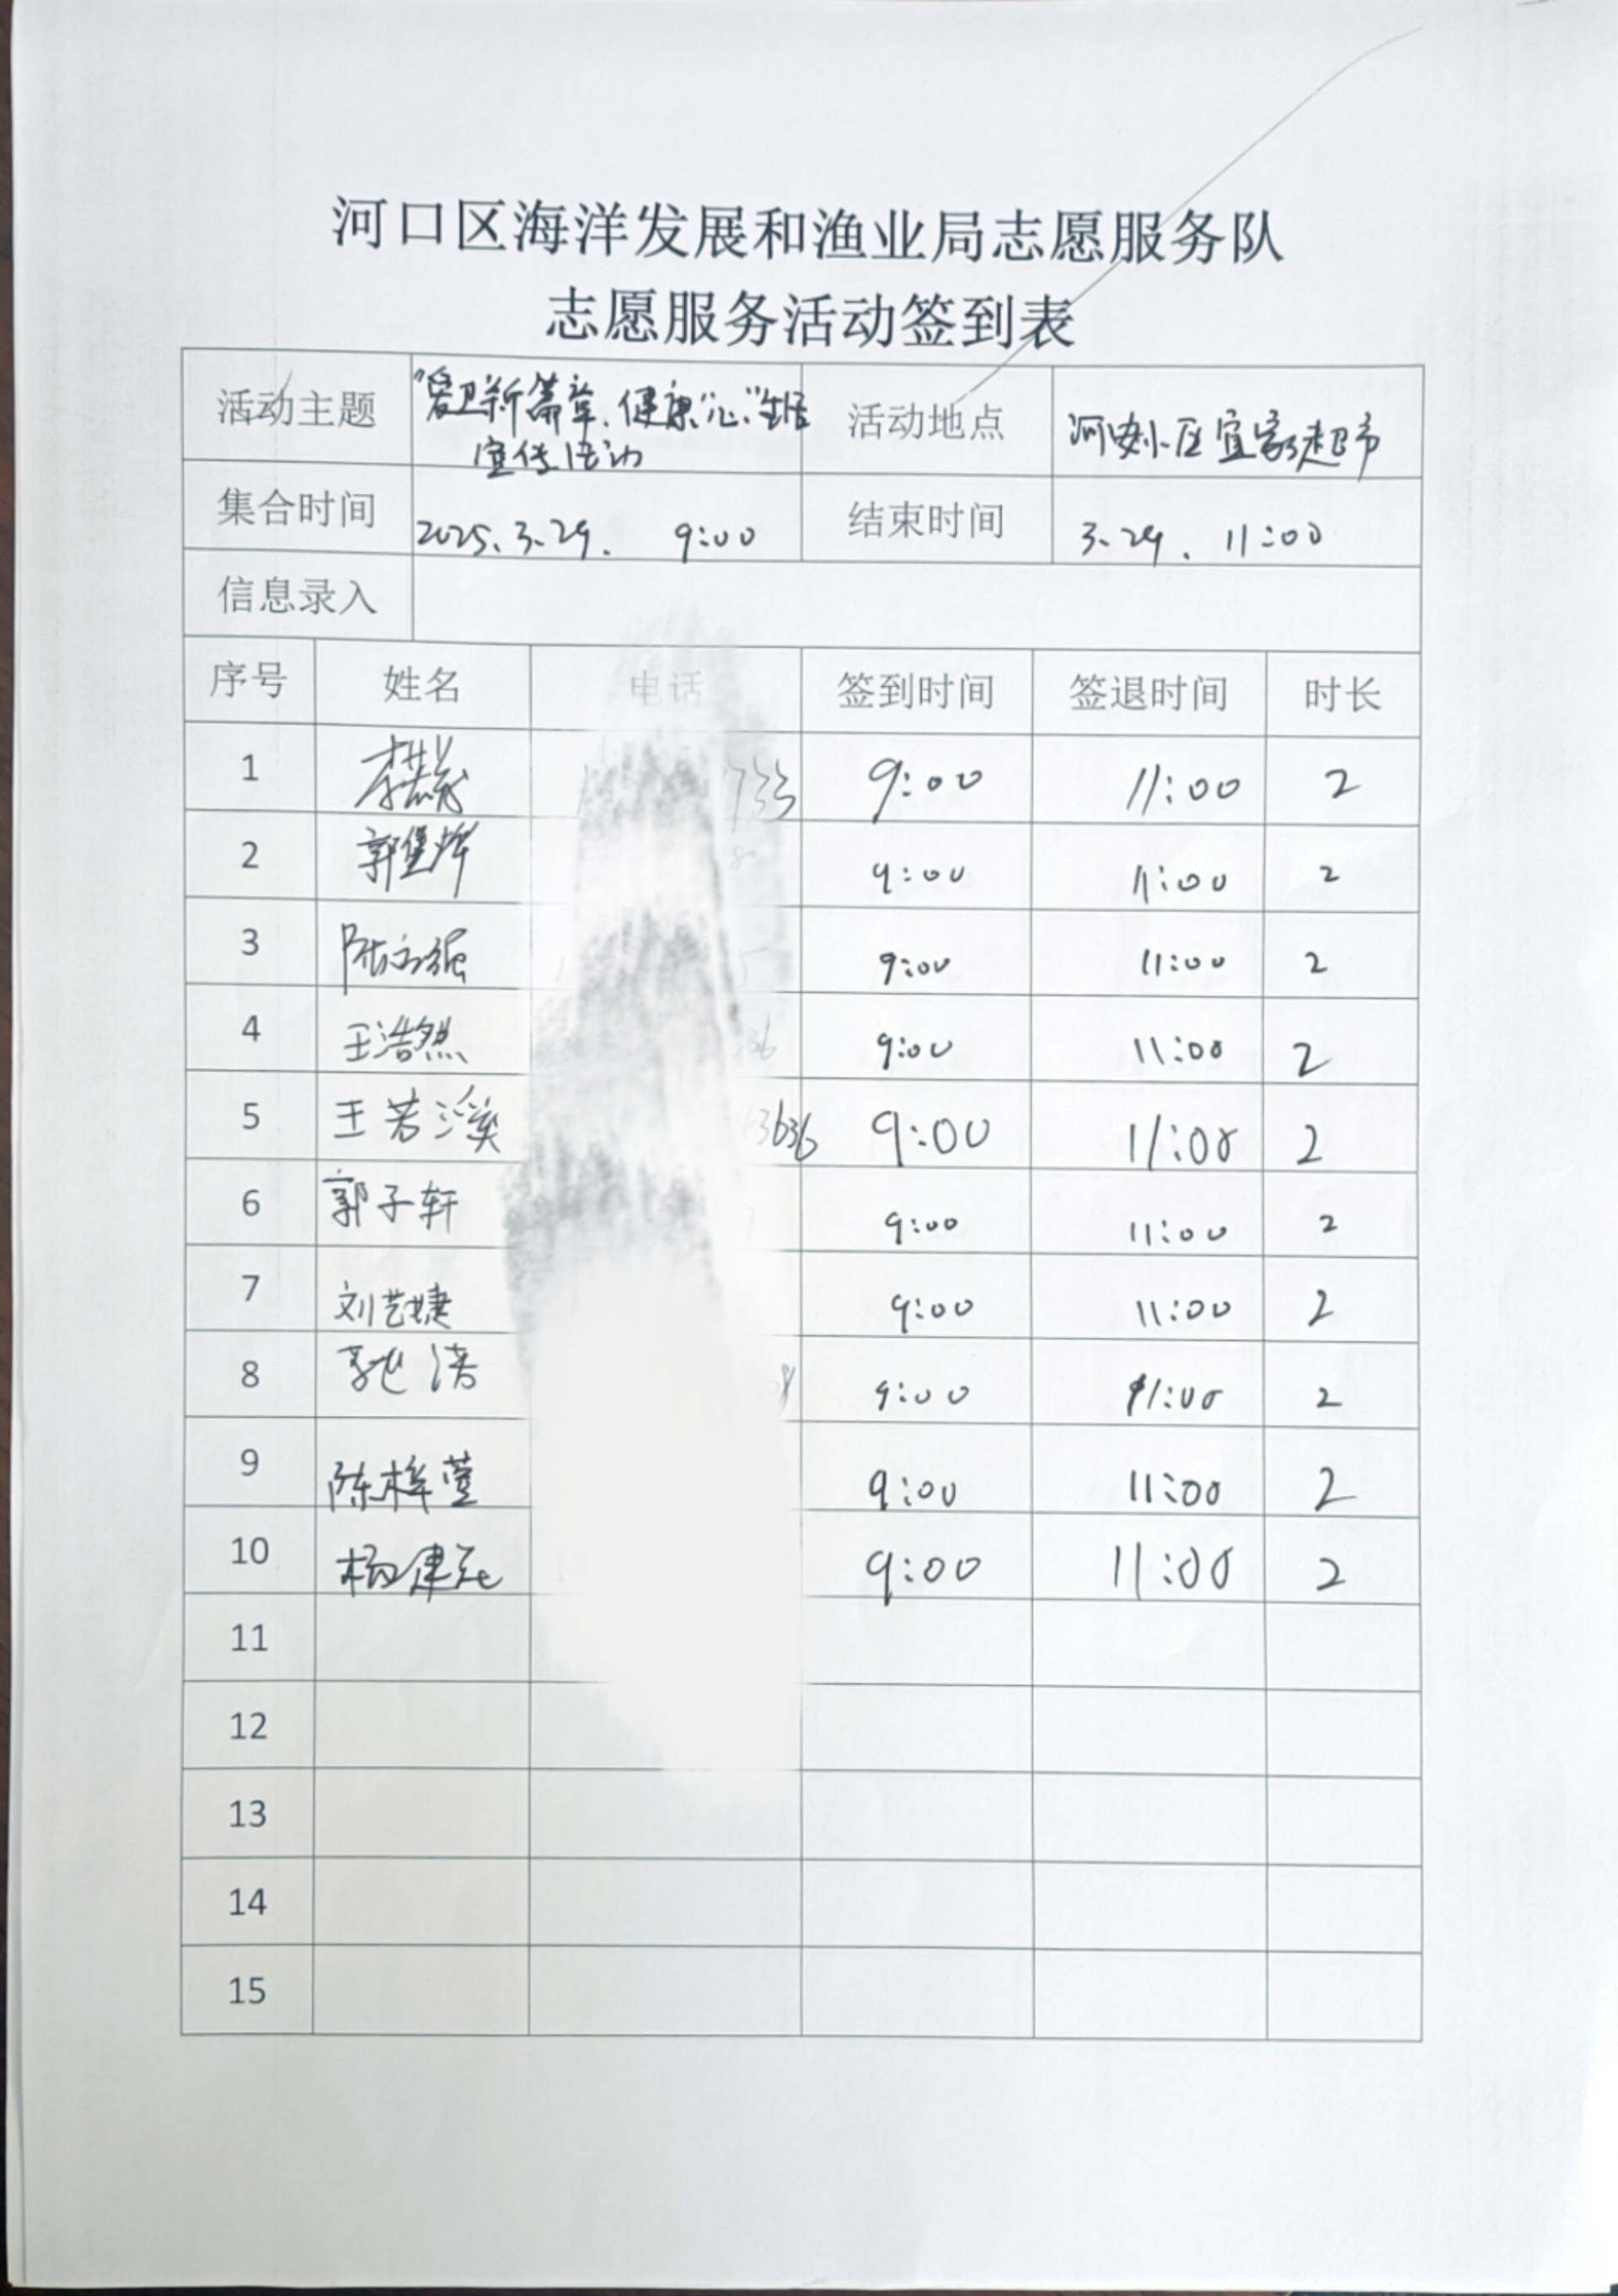 河口区海洋发展和渔业局志愿服务队
志愿服务活动签到表
活动主题 "爱卫新篇章、健康"心"生活 宣传活动 活动地点 河安小区宜家超市
集合时间 2025.3.29. 9:00 结束时间 3.29. 11:00
信息录入
序号 姓名 电话 签到时间 签退时间 时长
1 733 9:00 11:00 2
2 郭堡辉 8 9:00 11:00 2
3 陈立强 5 9:00 11:00 2
4 王浩然 36 9:00 11:00 2
5 王若溪 3636 9:00 11:00 2
6 郭子轩 9:00 11:00 2
7 刘艺婕 9:00 11:00 2
8 9:00 11:00 2
9 陈梓萱 9:00 11:00 2
10 杨建 9:00 11:00 2
11
12
13
14
15